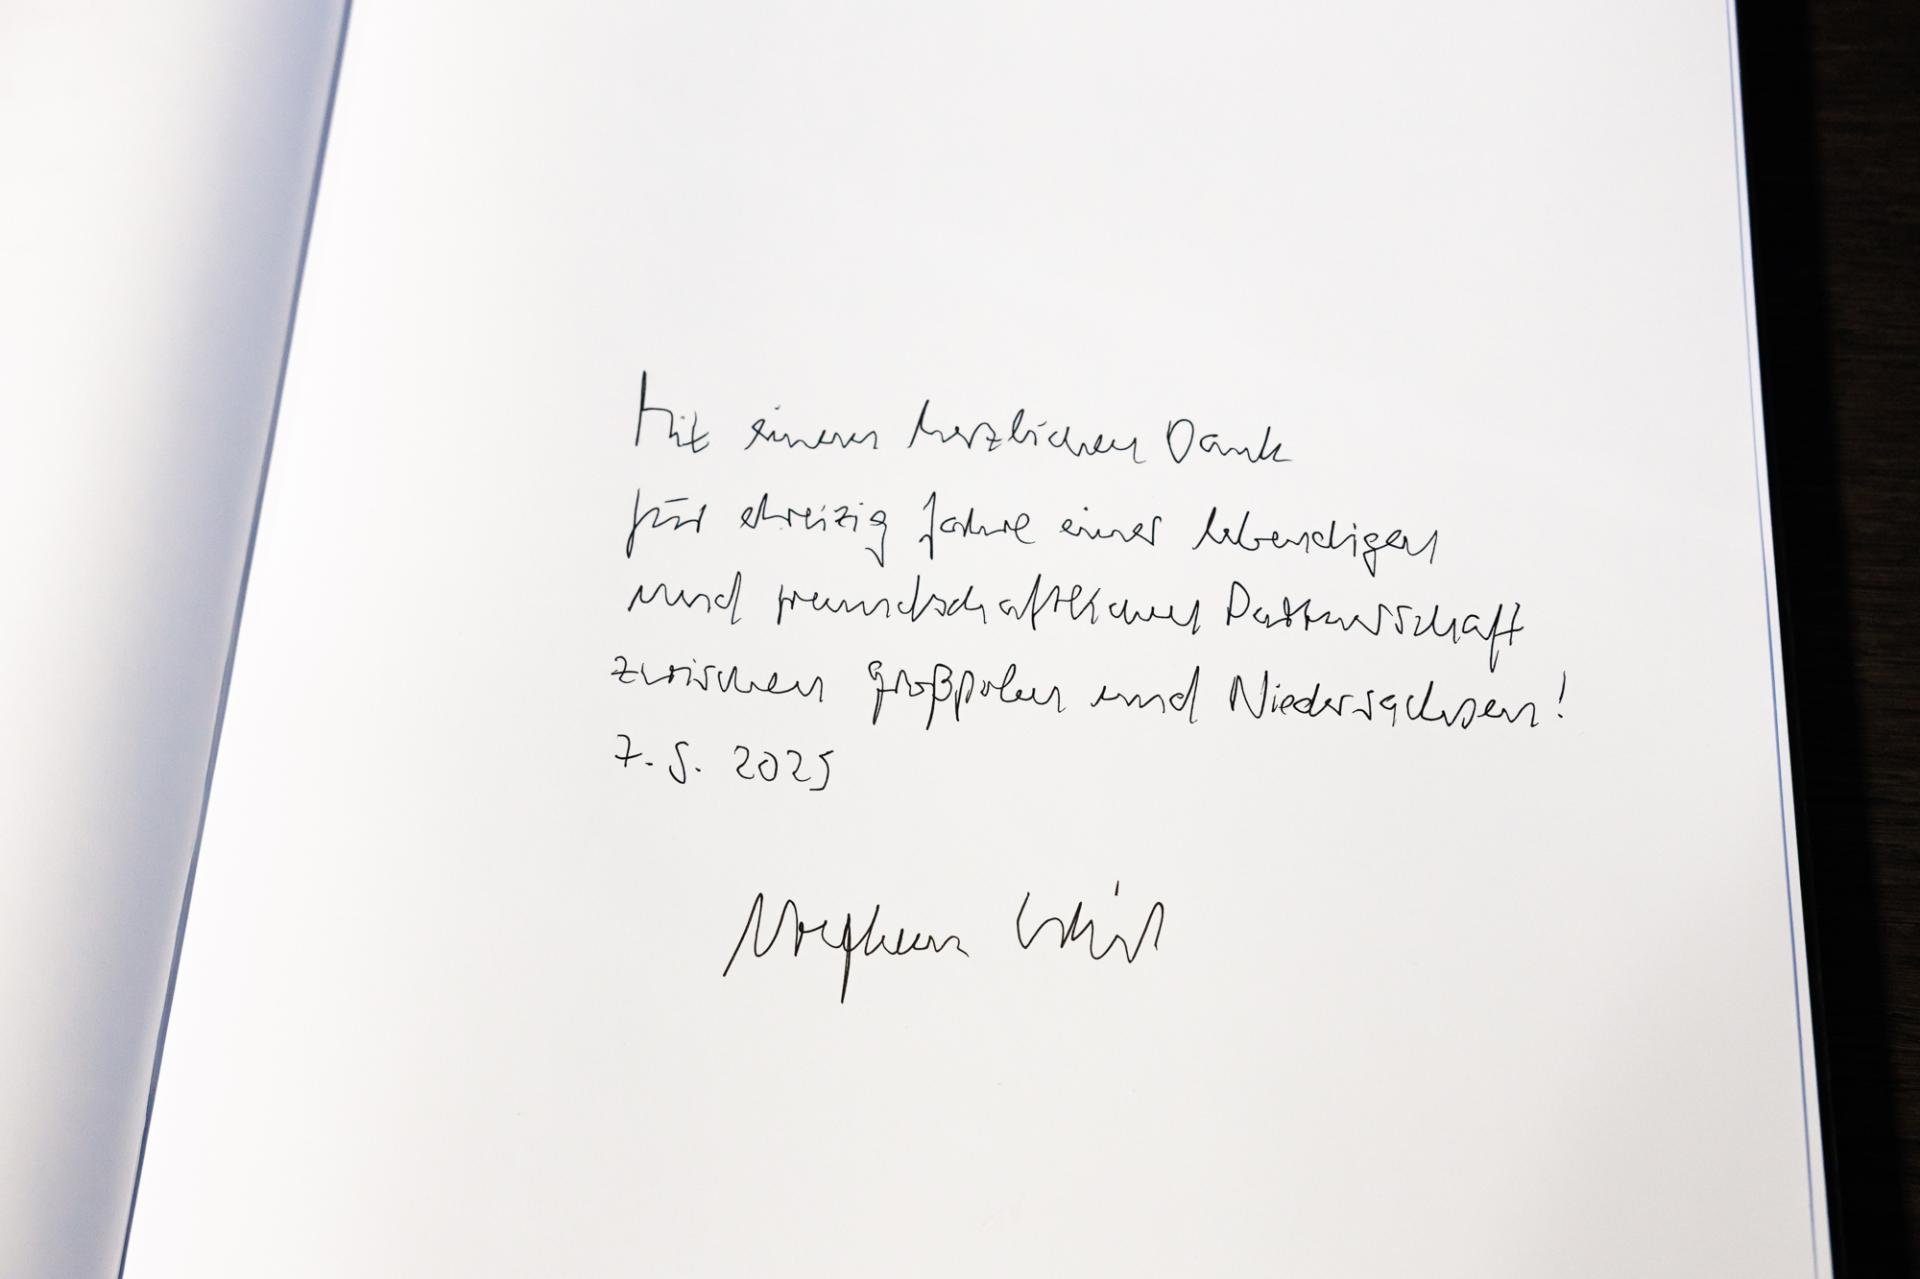 Mit einem herzlichen Dank
für dreizig Jahre einer lebendigen
und freundschaftlichen Partnerschaft
zwischen Großpolen und Niedersachsen!
7. 5. 2025
Stephan